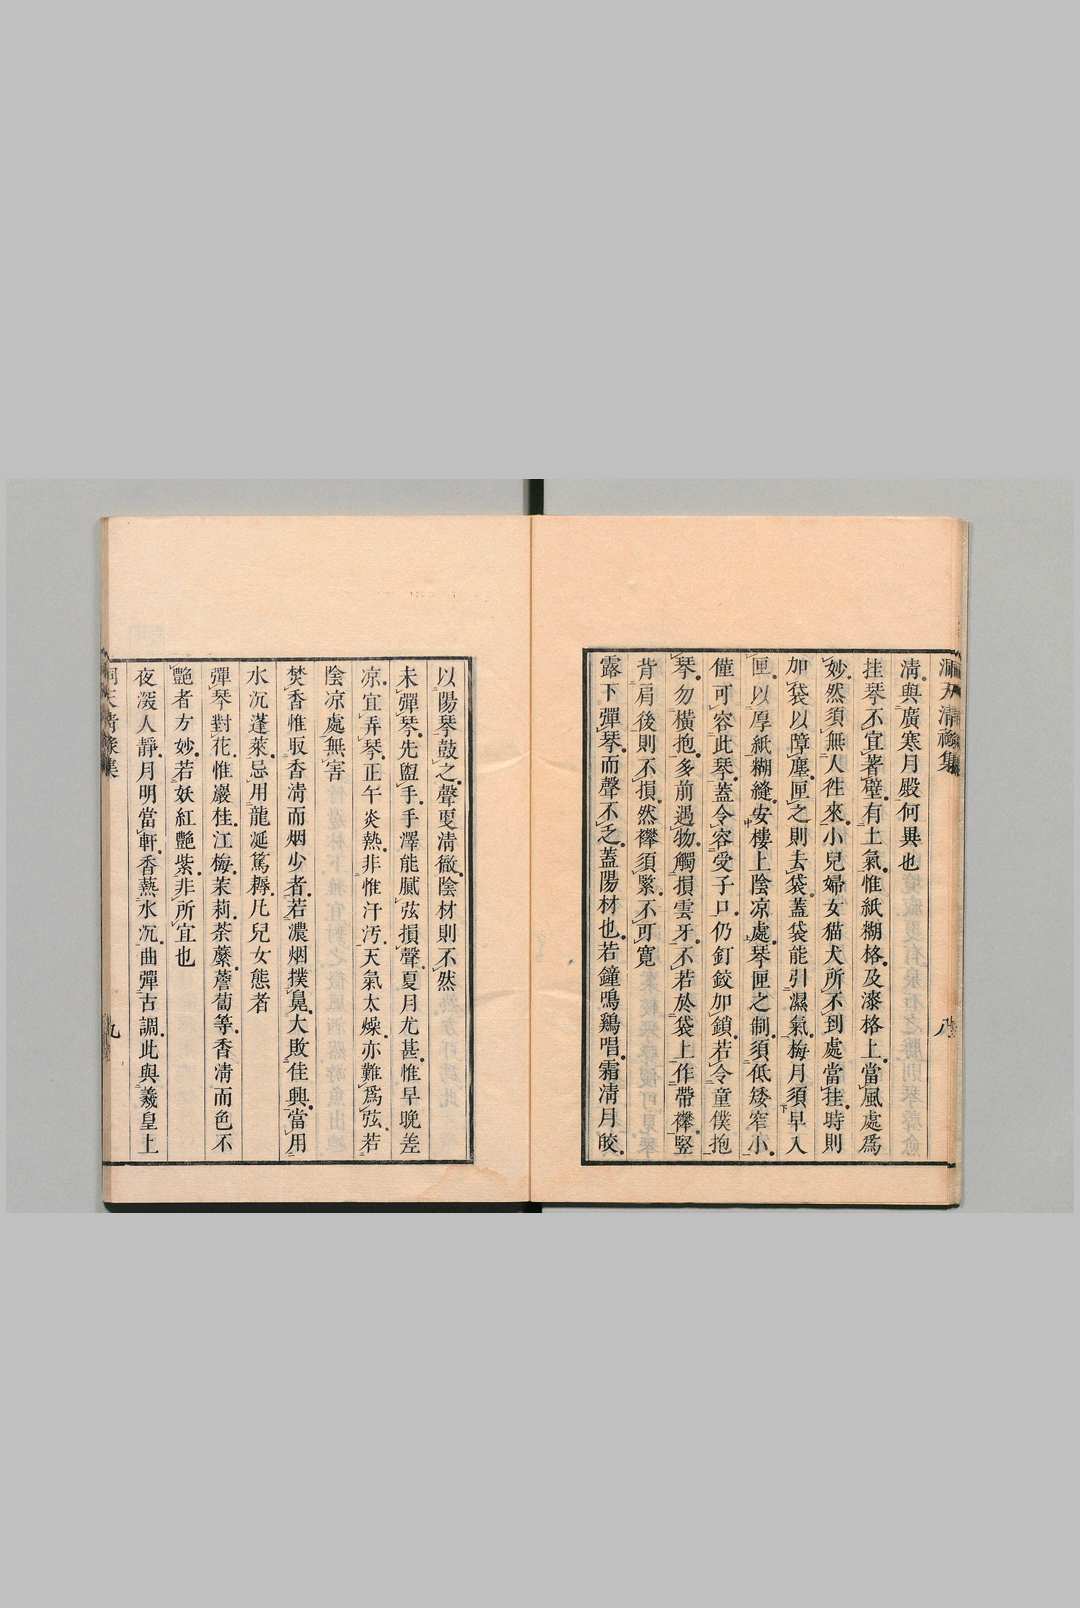 洞天清祿集
八
淸與廣寒月殿何異也
挂琴不宜著壁有土氣惟紙糊格及漆格上當風處爲
妙然須無人徃來小兒婦女猫犬所不到處當挂時則
加袋以障塵匣之則去袋蓋袋能引濕氣梅月須早入
匣以厚紙糊縫安樓上陰凉處琴匣之制須低矮窄小
僅可容此琴蓋令容受子口仍釘鉸加鎖若令童僕抱
琴勿橫抱多前遇物觸損雲牙不若於袋上作帶襻竪
背肩後則不損然襻須緊不可寛
露下彈琴而聲不乏蓋陽材也若鐘鳴鷄唱霜淸月皎
以陽琴鼓之聲更淸徹陰材則不然
未彈琴先盥手手澤能膩弦損聲夏月尤甚惟早晩差
凉宜弄琴正午炎熱非惟汗汚天氣太燥亦難爲弦若
陰凉處無害
焚香惟取香淸而烟少者若濃烟撲鼻大敗佳興當用
水沉蓬萊忌用龍涎篤耨凡兒女態者
彈琴對花惟巖桂江梅茉莉荼䕷薝蔔等香淸而色不
艷者方妙若妖紅艷紫非所宜也
夜深人靜月明當軒香爇水沉曲彈古調此與羲皇上
洞天淸祿集
九